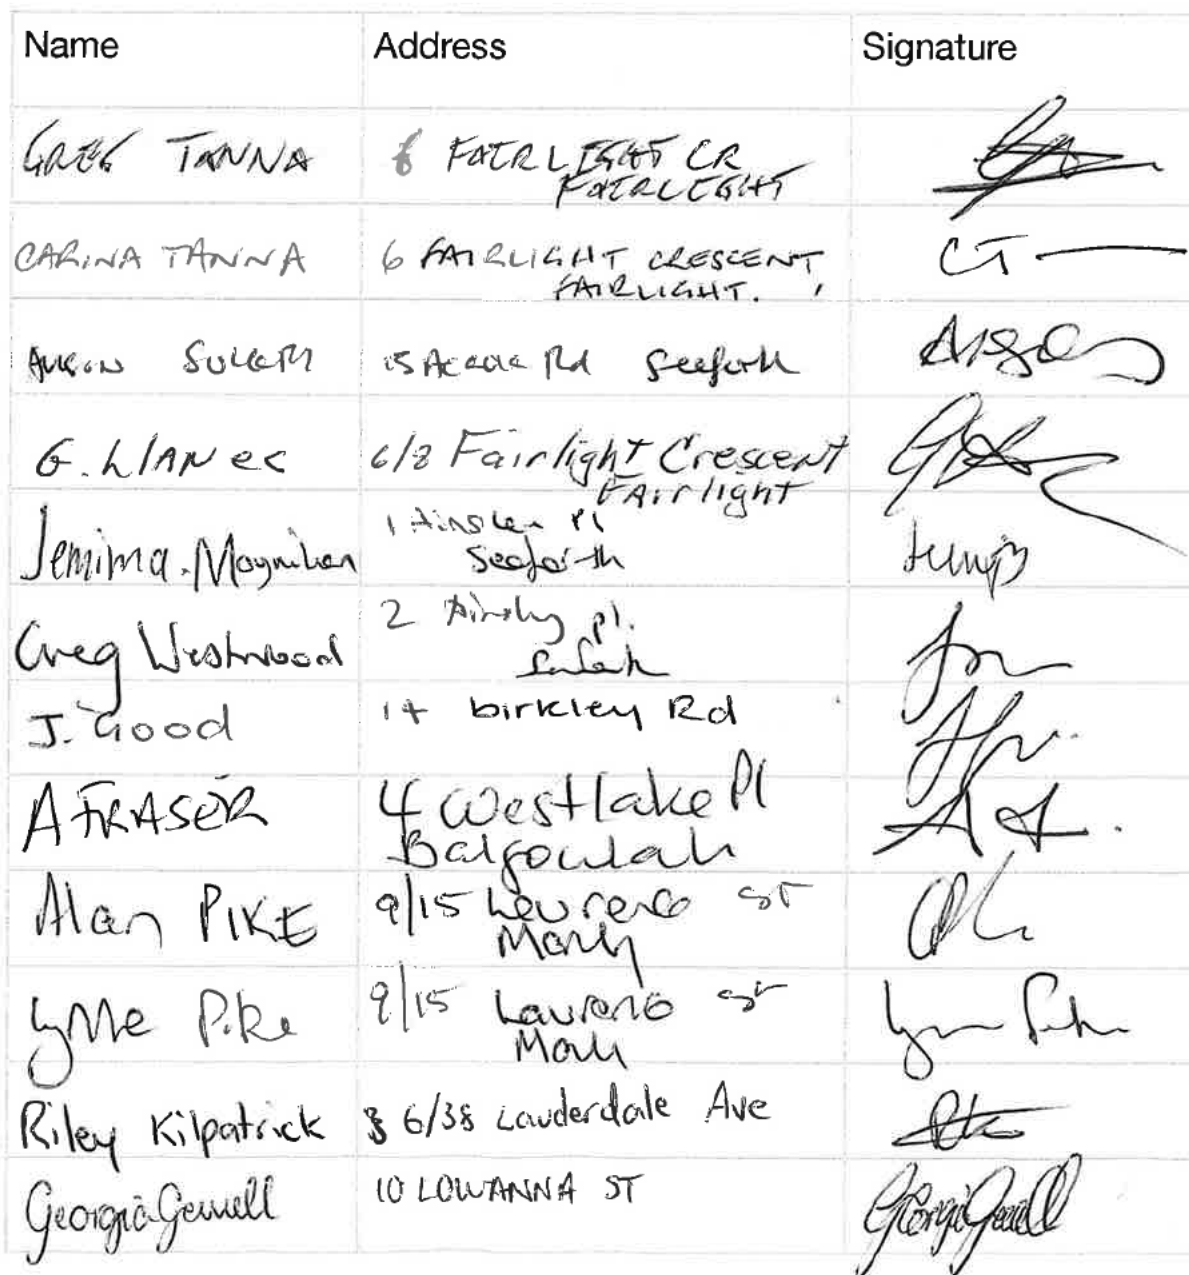 Name Address Signature
GREG TANNA 6 FAIRLIGHT CR
FAIRLIGHT
CARINA TANNA 6 FAIRLIGHT CRESCENT, CT
FAIRLIGHT.
15 Acacia Rd Seaforth
G. LLANES 6/8 Fairlight Crescent
FAirlight
Jemima. Moynihan 1 Ainslee Pl
Seaforth
Greg Westwood 2 pl.
J. Good 14 birkley Rd
A FRASER 4 Westlake Pl
Balgowlah
Alan PIKE 9/15 Lawrence ST
Manly
Lynne Pike 9/15 Lawrence St
Manly
Riley Kilpatrick 6/38 Lauderdale Ave
Georgia Gemell 10 LOWANNA ST Georgia Gemell